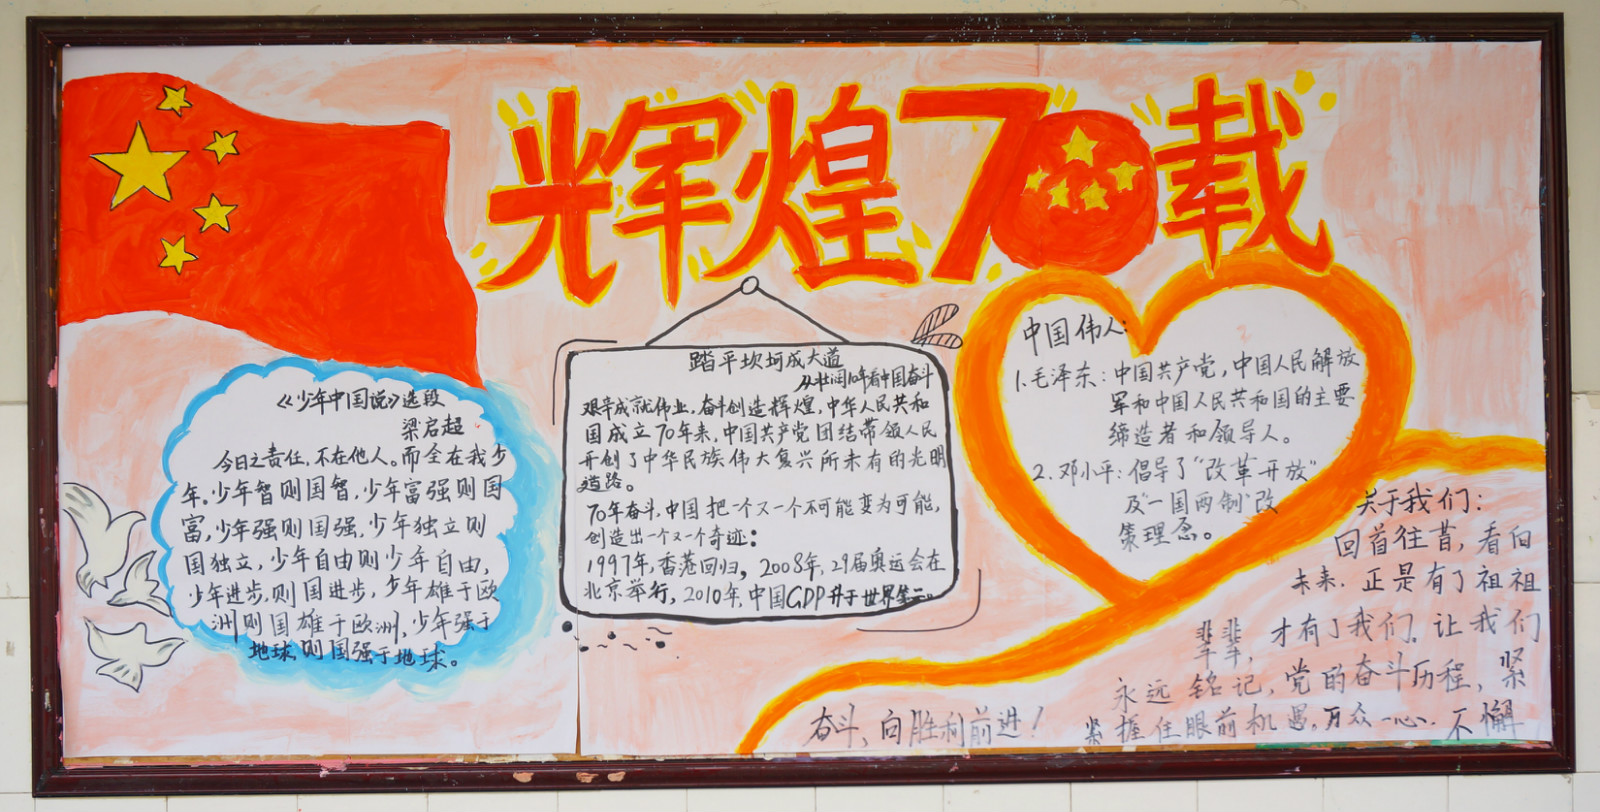 辉煌70载
《少年中国说》选段
梁启超
今日之责任,不在他人。而全在我少
年。少年智则国智,少年富强则国
富,少年强则国强,少年独立则
国独立,少年自由则少年自由,
少年进步,则国进步,少年雄于欧
洲则国雄于欧洲,少年强于
地球,则国强于地球。
踏平坎坷成大道
从壮阔10年看中国奋斗
艰辛成就伟业,奋斗创造辉煌,中华人民共和
国成立70年来,中国共产党团结带领人民
开创了中华民族伟大复兴所未有的光明
道路。
70年奋斗,中国把一个又一个不可能变为可能,
创造出一个又一个奇迹:
1997年,香港回归,2008年,29届奥运会在
北京举行,2010年,中国GDP升于世界第二。
中国伟人:
1.毛泽东:中国共产党,中国人民解放
军和中国人民共和国的主要
缔造者和领导人。
2.邓小平:倡导了“改革开放”
及“一国两制”改
策理念。
关于我们:
回首往昔,看向
未来.正是有了祖祖
辈辈,才有了我们.让我们
永远铭记,党的奋斗历程,紧
紧握住眼前机遇.万众一心.不懈
奋斗、向胜利前进!